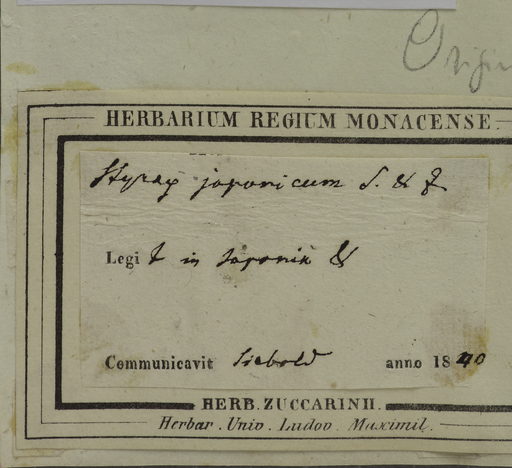 Origin
HERBARIUM REGIUM MONACENSE.
Styrax japonicum S. & Z.
Legit in Japonia
Communicavit Siebold anno 1840
HERB. ZUCCARINII.
Herbar. Univ. Ludov. Maximil.